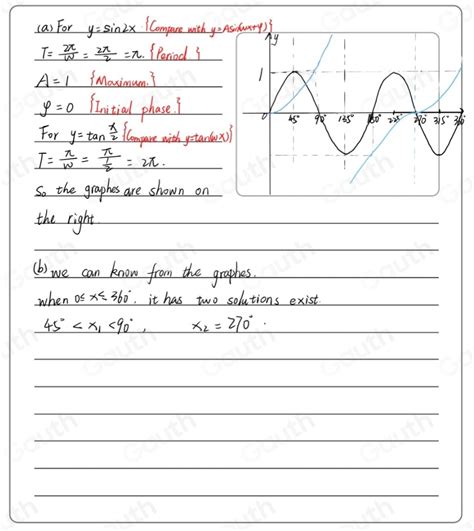 (a) For y=sin2x {Compare with y=Asin(ωx+φ)}
T= 2π/ω = 2π/2 =π. {Period}
A=1 {Maximum.}
φ=0 {Initial phase.}
For y=tan x/2 {Compare with y=tan(ωx)}
T= π/ω = π/(1/2) = 2π.
So the graphes are shown on
the right.
y
1
0 45° 90° 135° 180° 225° 270° 315° 360°
(b) we can know from the graphes.
when 0≤x≤360°. it has two solutions exist
45°<x₁<90°, x₂=270°.
Gauth